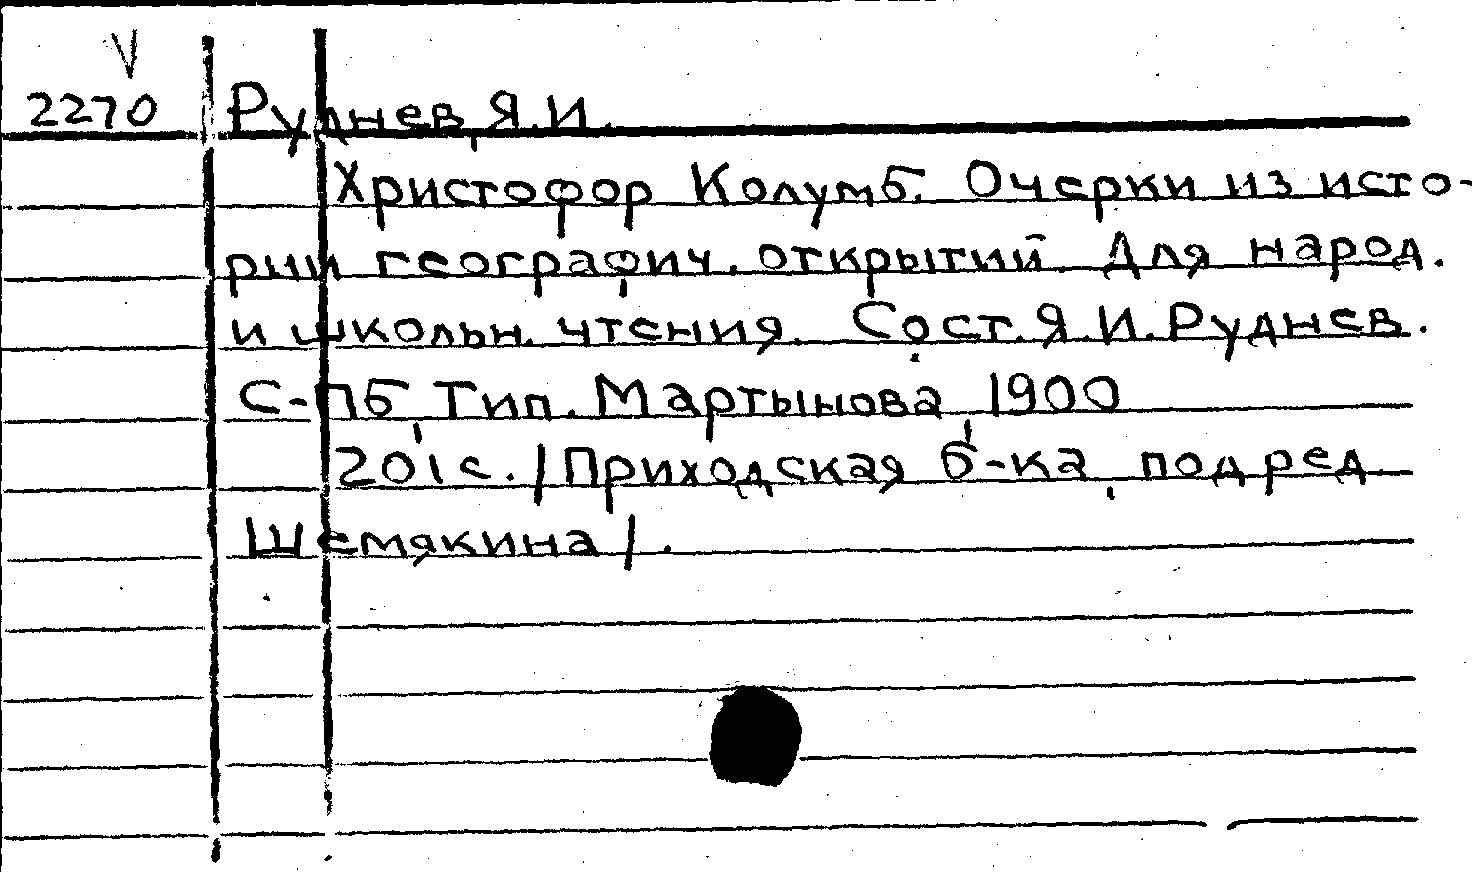 V
2270 Руднев, Я.И.
Христофор Колумб. Очерки из исто-
рии географич. открытий. Для народ.
и школьн. чтения. Сост. Я.И. Руднев.
С-ПБ, Тип. Мартынова, 1900
201с. /Приходская б-ка, под ред
Шемякина/.